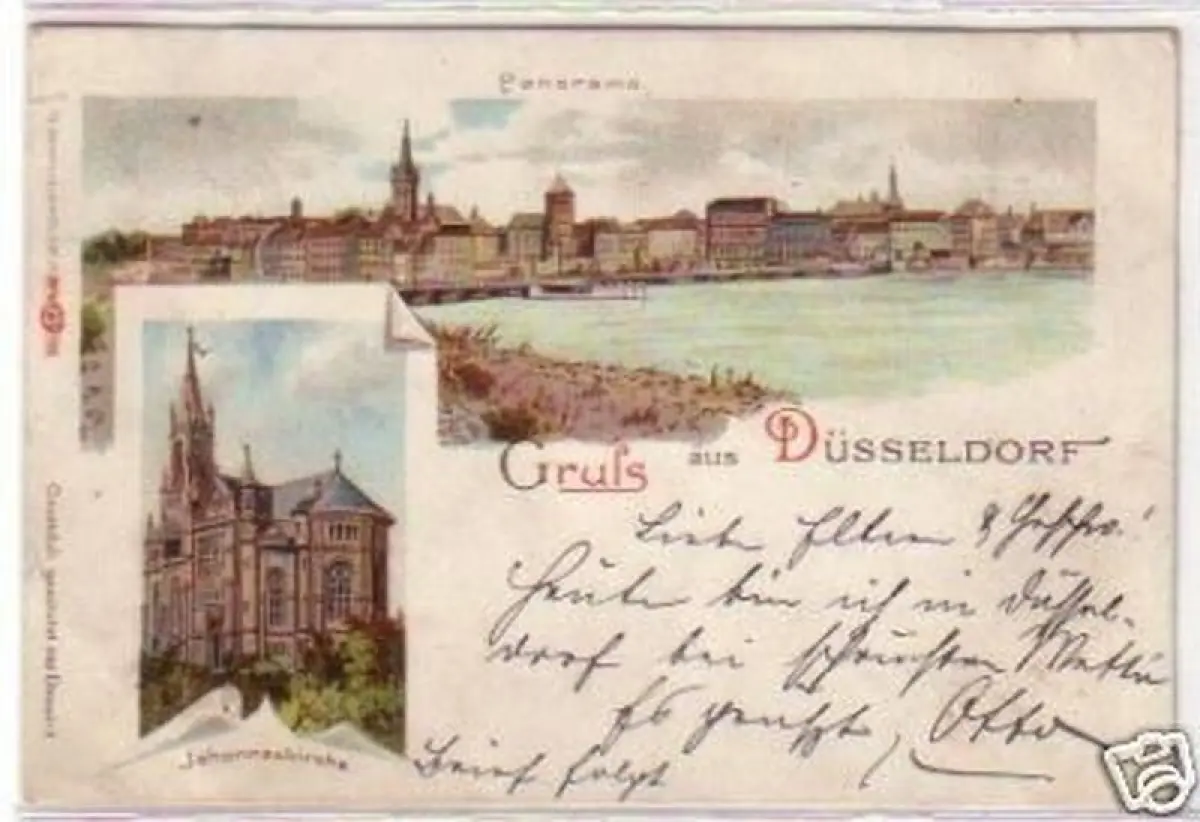 Panorama.
Gruſs aus Düsseldorf
Liebe Eltern & Geschw.!
Heute bin ich in Düssel-
dorf bei schönsten
Es grüsst, Otto
Brief folgt
Johanneskirche